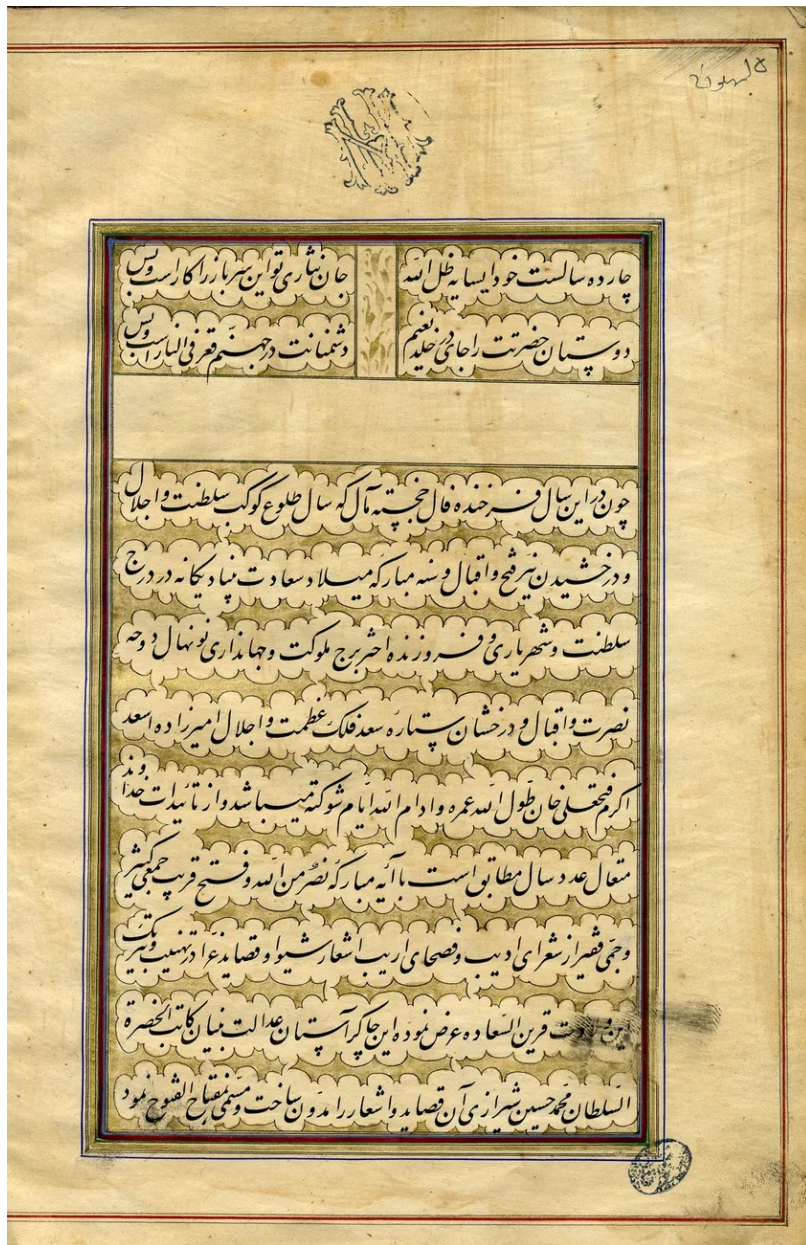 چارده سالست خود ایسایه ظل الله
جان نثاری تو این سرباز را کار است و بس
دوستان حضرتت را جای در خلد نعیم
دشمنانت در جهنم قعر فی النار است و بس
چون در این سال فرخنده فال خجسته مآل که سال طلوع کوکب سلطنت و اجلال
و درخشیدن نیر فتح و اقبال و سنه مبارکه میلاد سعادت بنیاد یکانه در درج
سلطنت و شهریاری و فروزنده اختر برج ملوکت و جهانداری نونهال دوحه
نصرت و اقبال و درخشان ستاره سعد فلک عظمت و اجلال امیرزاده اسعد
اکرم فتحقلی خان طول الله عمره و ادام الله ایام شوکته میباشد و از تائیدات خداوند
متعال عدد سال مطابق است با آیه مبارکه نصر من الله و فتح قریب جمعی کثیر
و جمی فقیر از شعرای ادیب و فصحای اریب اشعار شیوا و قصاید غرا در تهنیت و تبریک
این ولادت قرین السعاده عرض نموده این چاکر آستان عدالت بنیان کاتب الحضرة
السلطان محمد حسین شیرازی آن قصاید و اشعار را مدون ساخت و مسمی بمفتاح الفتوح نمود